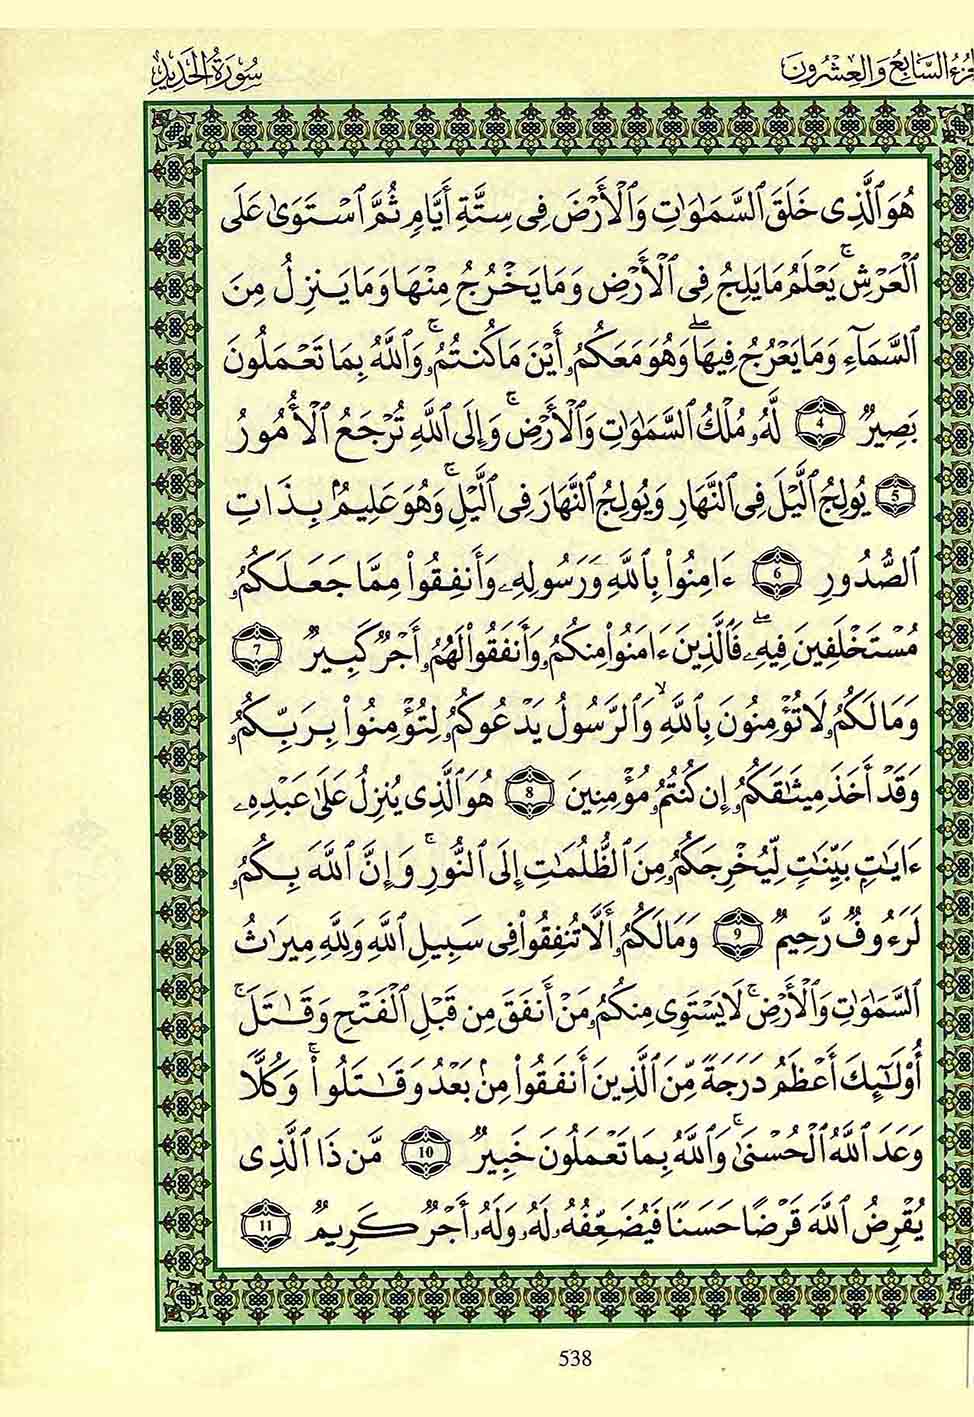 الجزء السابع والعشرون
سُورَةُ الحَدِيدِ
هُوَ ٱلَّذِى خَلَقَ ٱلسَّمَـٰوَٰتِ وَٱلْأَرْضَ فِى سِتَّةِ أَيَّامٍ ثُمَّ ٱسْتَوَىٰ عَلَى
ٱلْعَرْشِ ۚ يَعْلَمُ مَا يَلِجُ فِى ٱلْأَرْضِ وَمَا يَخْرُجُ مِنْهَا وَمَا يَنزِلُ مِنَ
ٱلسَّمَآءِ وَمَا يَعْرُجُ فِيهَا ۖ وَهُوَ مَعَكُمُۥ أَيْنَ مَا كُنتُمُۥ ۚ وَٱللَّهُ بِمَا تَعْمَلُونَ
بَصِيرٌ 4 لَّهُۥ مُلْكُ ٱلسَّمَـٰوَٰتِ وَٱلْأَرْضِ ۚ وَإِلَى ٱللَّهِ تُرْجَعُ ٱلْأُمُورُ
5 يُولِجُ ٱلَّيْلَ فِى ٱلنَّهَارِ وَيُولِجُ ٱلنَّهَارَ فِى ٱلَّيْلِ ۚ وَهُوَ عَلِيمٌۢ بِذَاتِ
ٱلصُّدُورِ 6 ءَامِنُوا۟ بِٱللَّهِ وَرَسُولِهِۦ وَأَنفِقُوا۟ مِمَّا جَعَلَكُمُۥ
مُسْتَخْلَفِينَ فِيهِۦ ۖ فَٱلَّذِينَ ءَامَنُوا۟ مِنكُمُۥ وَأَنفَقُوا۟ لَهُمُۥ أَجْرٌ كَبِيرٌ 7
وَمَا لَكُمُۥ لَا تُؤْمِنُونَ بِٱللَّهِ ۙ وَٱلرَّسُولُ يَدْعُوكُمُۥ لِتُؤْمِنُوا۟ بِرَبِّكُمُۥ
وَقَدْ أَخَذَ مِيثَـٰقَكُمُۥ إِن كُنتُمُۥ مُؤْمِنِينَ 8 هُوَ ٱلَّذِى يُنزِلُ عَلَىٰ عَبْدِهِۦ
ءَايَـٰتٍۭ بَيِّنَـٰتٍ لِّيُخْرِجَكُمُۥ مِنَ ٱلظُّلُمَـٰتِ إِلَى ٱلنُّورِ ۚ وَإِنَّ ٱللَّهَ بِكُمُۥ
لَرَءُوفٌ رَّحِيمٌ 9 وَمَا لَكُمُۥ أَلَّا تُنفِقُوا۟ فِى سَبِيلِ ٱللَّهِ وَلِلَّهِ مِيرَٰثُ
ٱلسَّمَـٰوَٰتِ وَٱلْأَرْضِ ۚ لَا يَسْتَوِى مِنكُمُۥ مَنْ أَنفَقَ مِن قَبْلِ ٱلْفَتْحِ وَقَـٰتَلَ ۚ
أُو۟لَـٰٓئِكَ أَعْظَمُ دَرَجَةً مِّنَ ٱلَّذِينَ أَنفَقُوا۟ مِنۢ بَعْدُ وَقَـٰتَلُوا۟ ۚ وَكُلًّا
وَعَدَ ٱللَّهُ ٱلْحُسْنَىٰ ۚ وَٱللَّهُ بِمَا تَعْمَلُونَ خَبِيرٌ 10 مَّن ذَا ٱلَّذِى
يُقْرِضُ ٱللَّهَ قَرْضًا حَسَنًا فَيُضَعِّفُهُۥ لَهُۥ وَلَهُۥ أَجْرٌ كَرِيمٌ 11
538